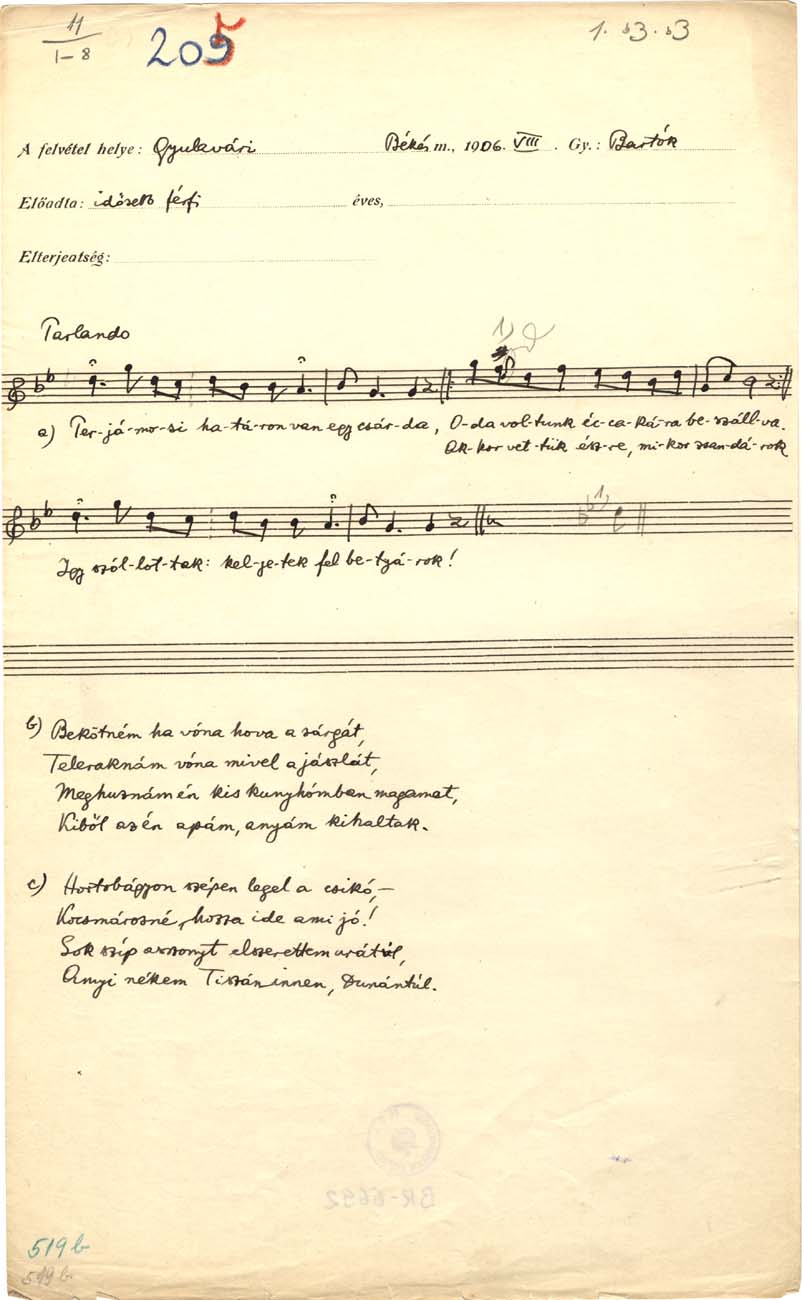 11
1-8
205
1. b3. b3
A felvétel helye: Gyulavári Békés m., 1906. VIII. Gy.: Bartók
Előadta: idősebb férfi éves,
Elterjedtség:
Parlando
a) Ter-já-mo-si ha-tá-ron van egy csár-da, O-da vol-tunk éc-ca-ká-ra be-száll-va.
Ak-kor vet-tük ész-re, mi-kor zsan-dá-rok
Igy szól-lot-tak: kel-je-tek fel be-tyá-rok!
b) Bekötném ha vóna hova a sárgát,
Teleraknám vóna mivel a jászlát,
Meghuznám én kis kunyhómban magamat,
Kiből az én apám, anyám kihaltak.
c) Hortobágyon szépen legel a csikó, –
Kocsmárosné, hozza ide ami jó!
Sok szíp asszonyt elszerettem urátúl,
Anyi nékem Tiszán innen, Dunántúl.
BR-6692
519 b
519 b.